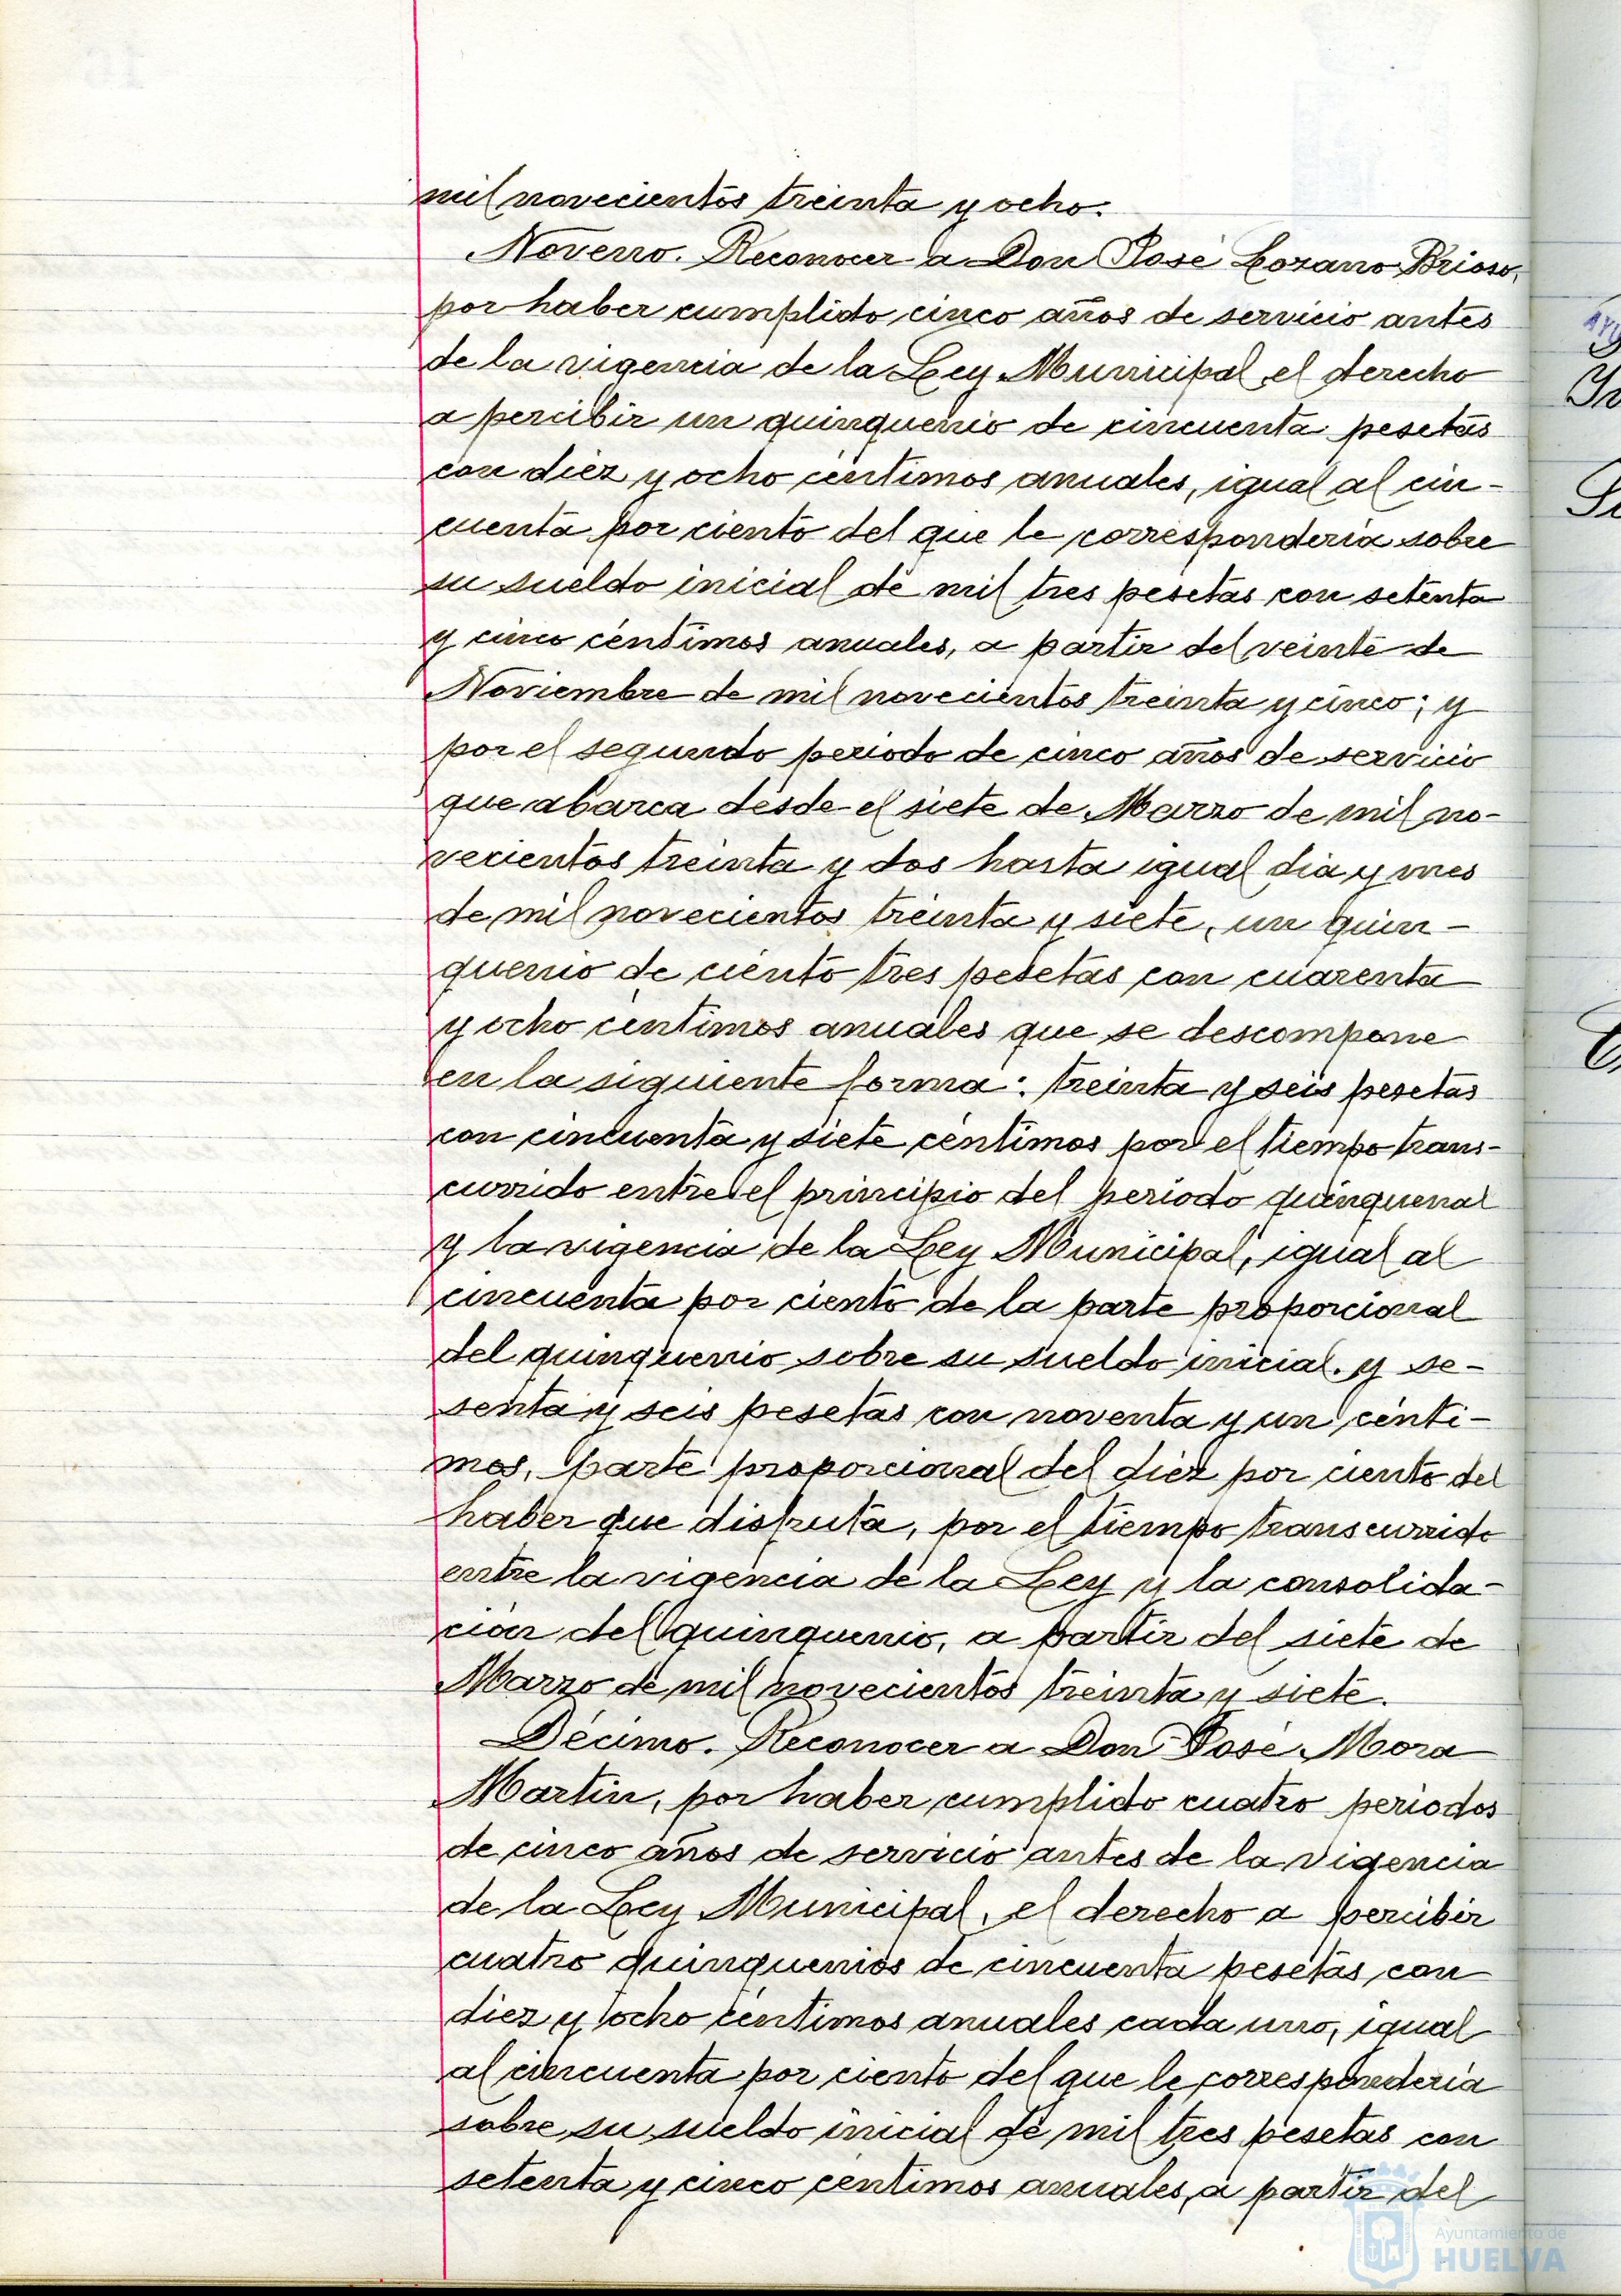 mil novecientos treinta y ocho.
Noveno. Reconocer a Don José Lozano Brioso,
por haber cumplido cinco años de servicio antes
de la vigencia de la Ley Municipal, el derecho
a percibir un quinquenio de cincuenta pesetas
con diez y ocho céntimos anuales, igual al cin-
cuenta por ciento del que le correspondería sobre
su sueldo inicial de mil tres pesetas con setenta
y cinco céntimos anuales, a partir del veinte de
Noviembre de mil novecientos treinta y cinco; y
por el segundo periodo de cinco años de servicio
que abarca desde el siete de Marzo de mil no-
vecientos treinta y dos hasta igual día y mes
de mil novecientos treinta y siete, un quin-
quenio de ciento tres pesetas con cuarenta
y ocho céntimos anuales que se descompone
en la siguiente forma: treinta y seis pesetas
con cincuenta y siete céntimos por el tiempo trans-
currido entre el principio del periodo quinquenal
y la vigencia de la Ley Municipal, igual al
cincuenta por ciento de la parte proporcional
del quinquenio sobre su sueldo inicial. y se-
senta y seis pesetas con noventa y un cénti-
mos, parte proporcional del diez por ciento del
haber que disfruta, por el tiempo transcurrido
entre la vigencia de la Ley y la consolida-
ción del quinquenio, a partir del siete de
Marzo de mil novecientos treinta y siete.
Décimo. Reconocer a Don José Mora
Martin, por haber cumplido cuatro periodos
de cinco años de servicio antes de la vigencia
de la Ley Municipal, el derecho a percibir
cuatro quinquenios de cincuenta pesetas con
diez y ocho céntimos anuales cada uno, igual
al cincuenta por ciento del que le correspondería
sobre su sueldo inicial de mil tres pesetas con
setenta y cinco céntimos anuales, a partir del
Ayuntamiento de
HUELVA